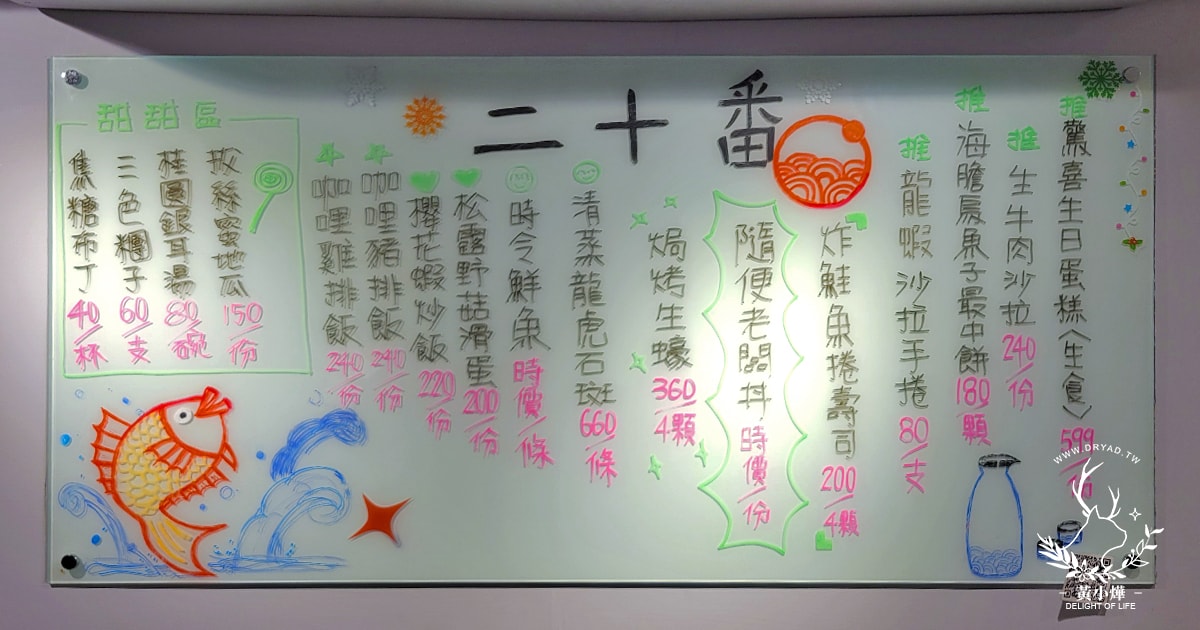 二十番
推 驚喜生日蛋糕〈生食〉 599/份
推 生牛肉沙拉 240/份
推 海膽烏魚子最中餅 180/顆
推 龍蝦沙拉手捲 80/支
炸鮭魚捲壽司 200/4顆
隨便老闆丼 時價/份
焗烤生蠔 360/4顆
清蒸龍虎石斑 660/條
時令鮮魚 時價/條
松露野菇滑蛋 200/份
櫻花蝦炒飯 220/份
咖哩豬排飯 240/份
咖哩雞排飯 240/份
甜甜區
拔絲蜜地瓜 150/份
桂圓銀耳湯 80/碗
三色糰子 60/支
焦糖布丁 40/杯
WWW.DRYAD.TW
黃小燁
DELIGHT OF LIFE